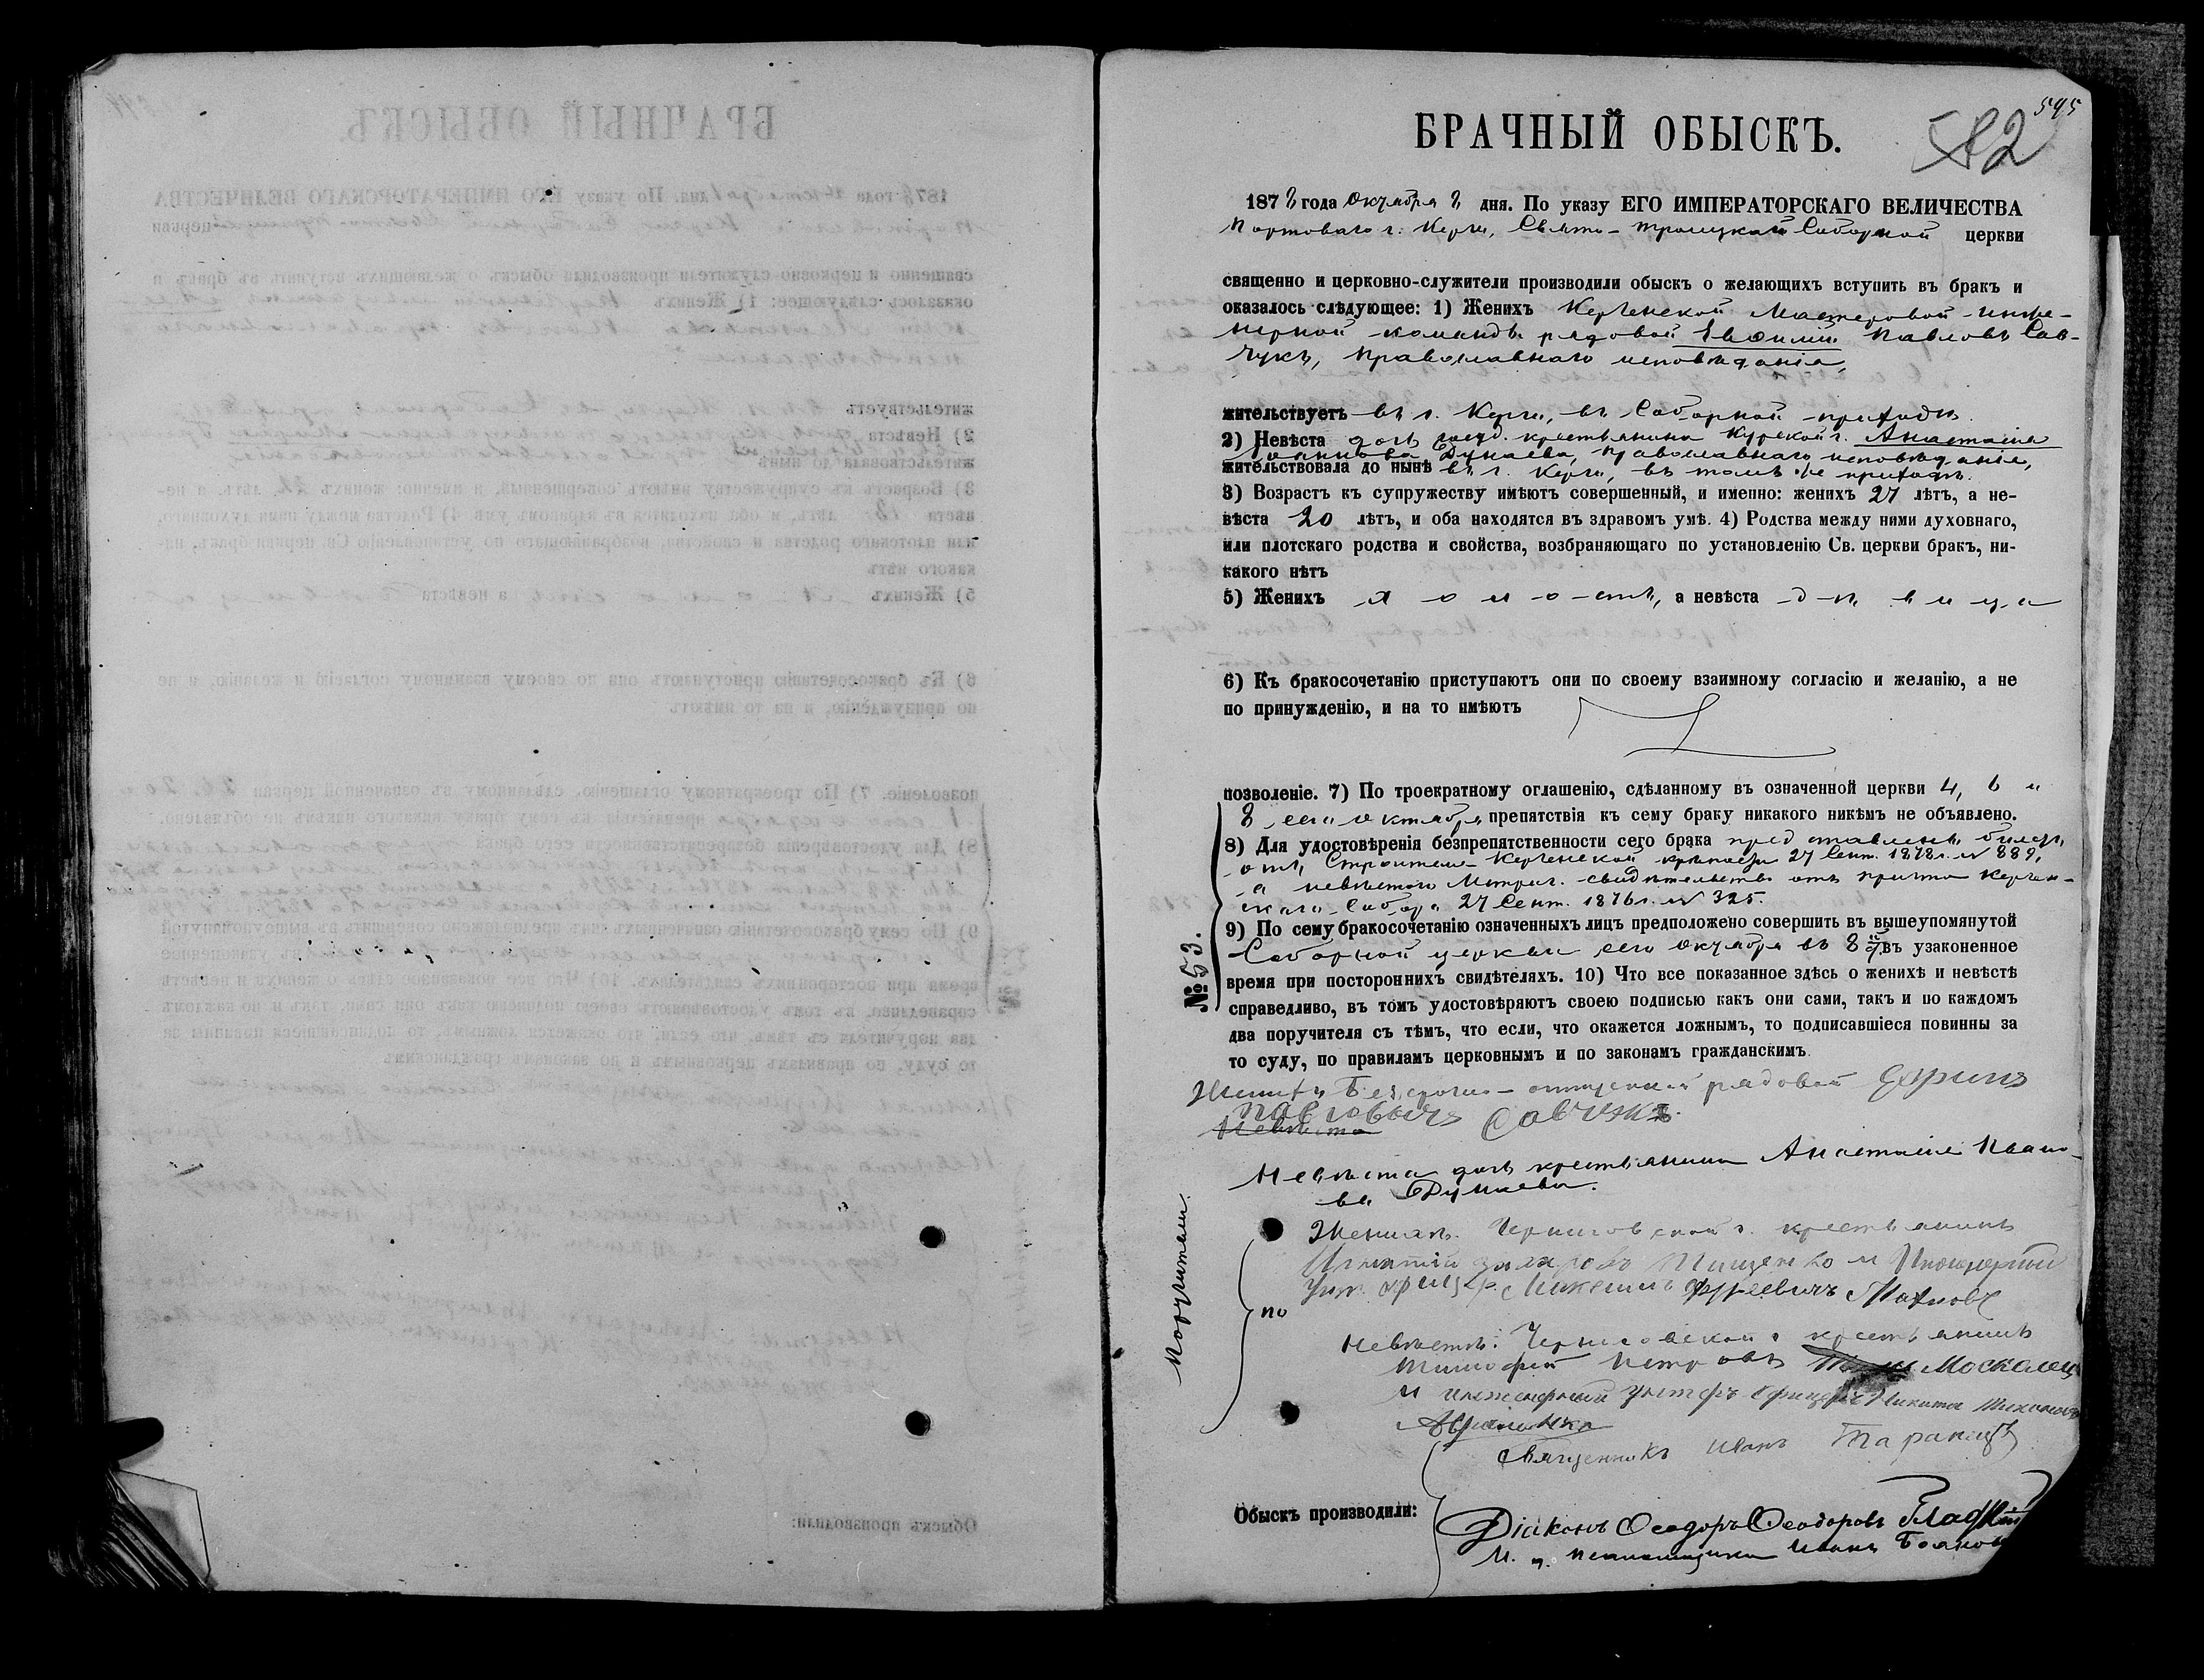 595
582
БРАЧНЫЙ ОБЫСКЪ.
1878 года Октября 8 дня. По указу ЕГО ИМПЕРАТОРСКАГО ВЕЛИЧЕСТВА
Портоваго г. Керчи, Свято-Троицкой Соборной церкви
священно и церковно-служители производили обыскъ о желающихъ вступить въ бракъ и
оказалось слѣдующее: 1) Женихъ Керченской Мастеровой инже-
нерной команды рядовой Евѳимій Павловъ Сав-
чукъ, православнаго исповѣданія,
жительствуетъ въ г. Керчи, въ Соборномъ приходѣ.
2) Невѣста дочь госуд. крестьянина Курской г. Анастасія
Іоаннова Дунаева, православнаго исповѣданія,
жительствовала до нынѣ въ г. Керчи, въ томъ же приходѣ.
3) Возрастъ къ супружеству имѣютъ совершенный, и именно: женихъ 27 лѣтъ, а не-
вѣста 20 лѣтъ, и оба находятся въ здравомъ умѣ. 4) Родства между ними духовнаго,
или плотскаго родства и свойства, возбраняющаго по установленію Св. церкви бракъ, ни-
какого нѣтъ
5) Женихъ холостъ, а невѣста дѣвица
6) Къ бракосочетанію приступаютъ они по своему взаимному согласію и желанію, а не
по принужденію, и на то имѣютъ
позволеніе. 7) По троекратному оглашенію, сдѣланному въ означенной церкви 4, 6 и
8 сего октября препятствія къ сему браку никакого никѣмъ не объявлено.
8) Для удостовѣренія безпрепятственности сего брака представлены: билетъ
отъ Строителя Керченской крѣпости 27 Сент. 1878 г. № 889,
а невѣстою Метрич. свидѣтельство отъ причта Керчен-
скаго Собора 27 Сент. 1876 г. № 325.
9) По сему бракосочетанію означенныхъ лицъ предположено совершить въ вышеупомянутой
Соборной церкви сего Октября въ 8 д. въ узаконенное
время при постороннихъ свидѣтеляхъ. 10) Что все показанное здѣсь о женихѣ и невѣстѣ
справедливо, въ томъ удостовѣряютъ своею подписью какъ они сами, такъ и по каждомъ
два поручителя съ тѣмъ, что если, что окажется ложнымъ, то подписавшіеся повинны за
то суду, по правиламъ церковнымъ и по законамъ гражданскимъ.
№ 53.
Женихъ Безсрочно-отпускной рядовой Ефимъ
Павловичъ Савчукъ.
Невѣста
Невѣста дочь крестьянина Анастасія Ивано-
ва Дунаева.
Поручители
по
Женихѣ: Черниговской г. крестьянинъ
Игнатій Тищенко и Инженерный
Унт. офиц. Махновъ
Невѣстѣ: Черниговской г. крестьянинъ
Тимофей Петровъ Москалец
и инженерный унтеръ офицеръ Никита
Священникъ Иванъ Таранецъ
Обыскъ производили:
Діаконъ Ѳеодоръ Ѳеодоровъ Гладкій
И. д. псаломщика Иванъ